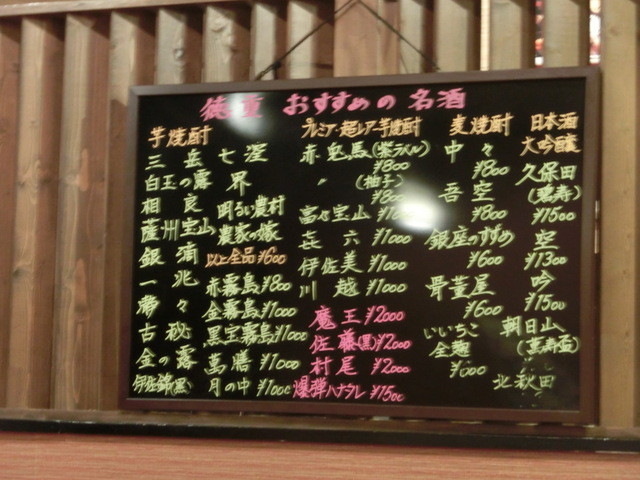 徳重 おすすめの名酒
芋焼酎
三岳 七窪
白玉の露 界
相良 明るい農村
薩州宝山 農家の嫁
銀滴 以上全品¥600
一兆 赤霧島¥800
夢々 金霧島¥1000
古秘 黒宝霧島¥1000
金の露 萬膳¥1000
伊佐錦(黒) 月の中¥1000
プレミア・超レアー芋焼酎
赤兎馬(紫ラベル)
¥800
〃(柚子)
¥800
富乃宝山
㐂六 ¥1000
伊佐美 ¥1000
川越 ¥1000
魔王 ¥2000
佐藤(黒)¥2000
村尾 ¥2000
爆弾ハナタレ ¥1500
麦焼酎
中々
¥800
吾空
¥800
銀座のすずめ
¥600
骨董屋
¥600
いいちこ
全麹
日本酒
大吟醸
久保田
(碧寿)
¥1500
空
¥1300
吟
¥1500
朝日山
(萬寿盃)
北秋田